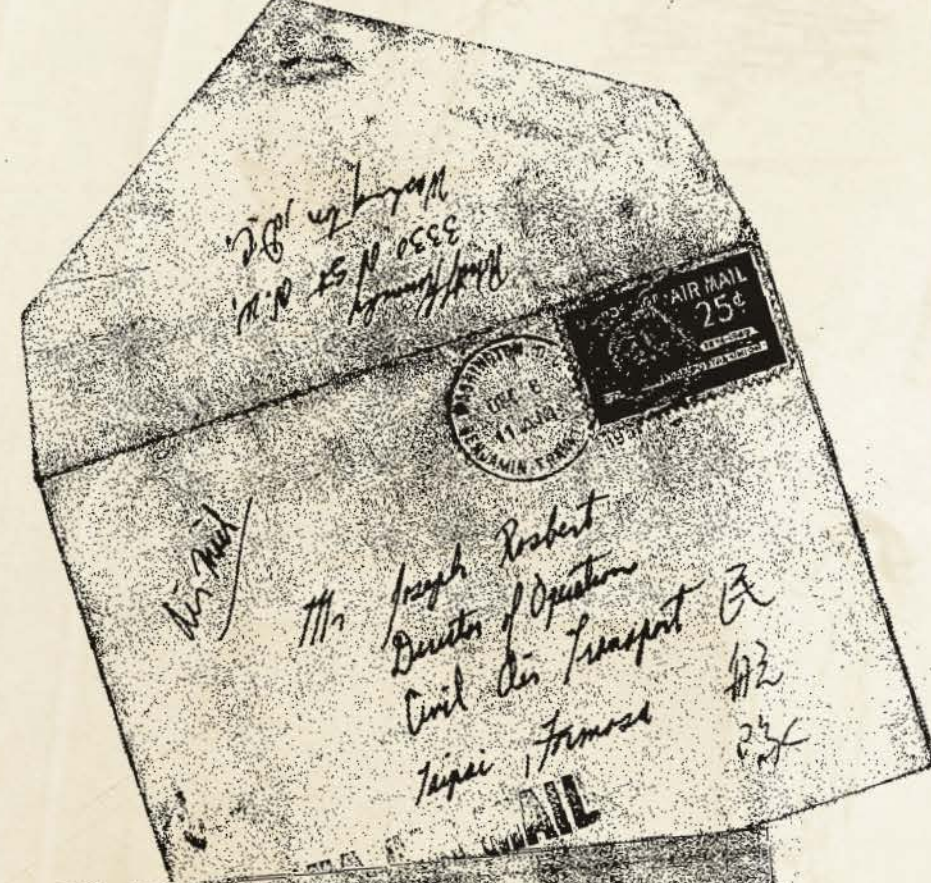 3330 N St N.W.
Washington, D.C.
AIR MAIL
25¢
WASHINGTON, D.C.
DEC 8
11 AM
BENJAMIN FRANK
Air mail
Mr Joseph Rosbert
Director of Operation
Civil Air Transport 民
Taipai, Formosa 航
隊
MAIL